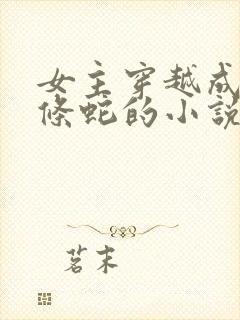 女主穿越成
條蛇的小說
茗末